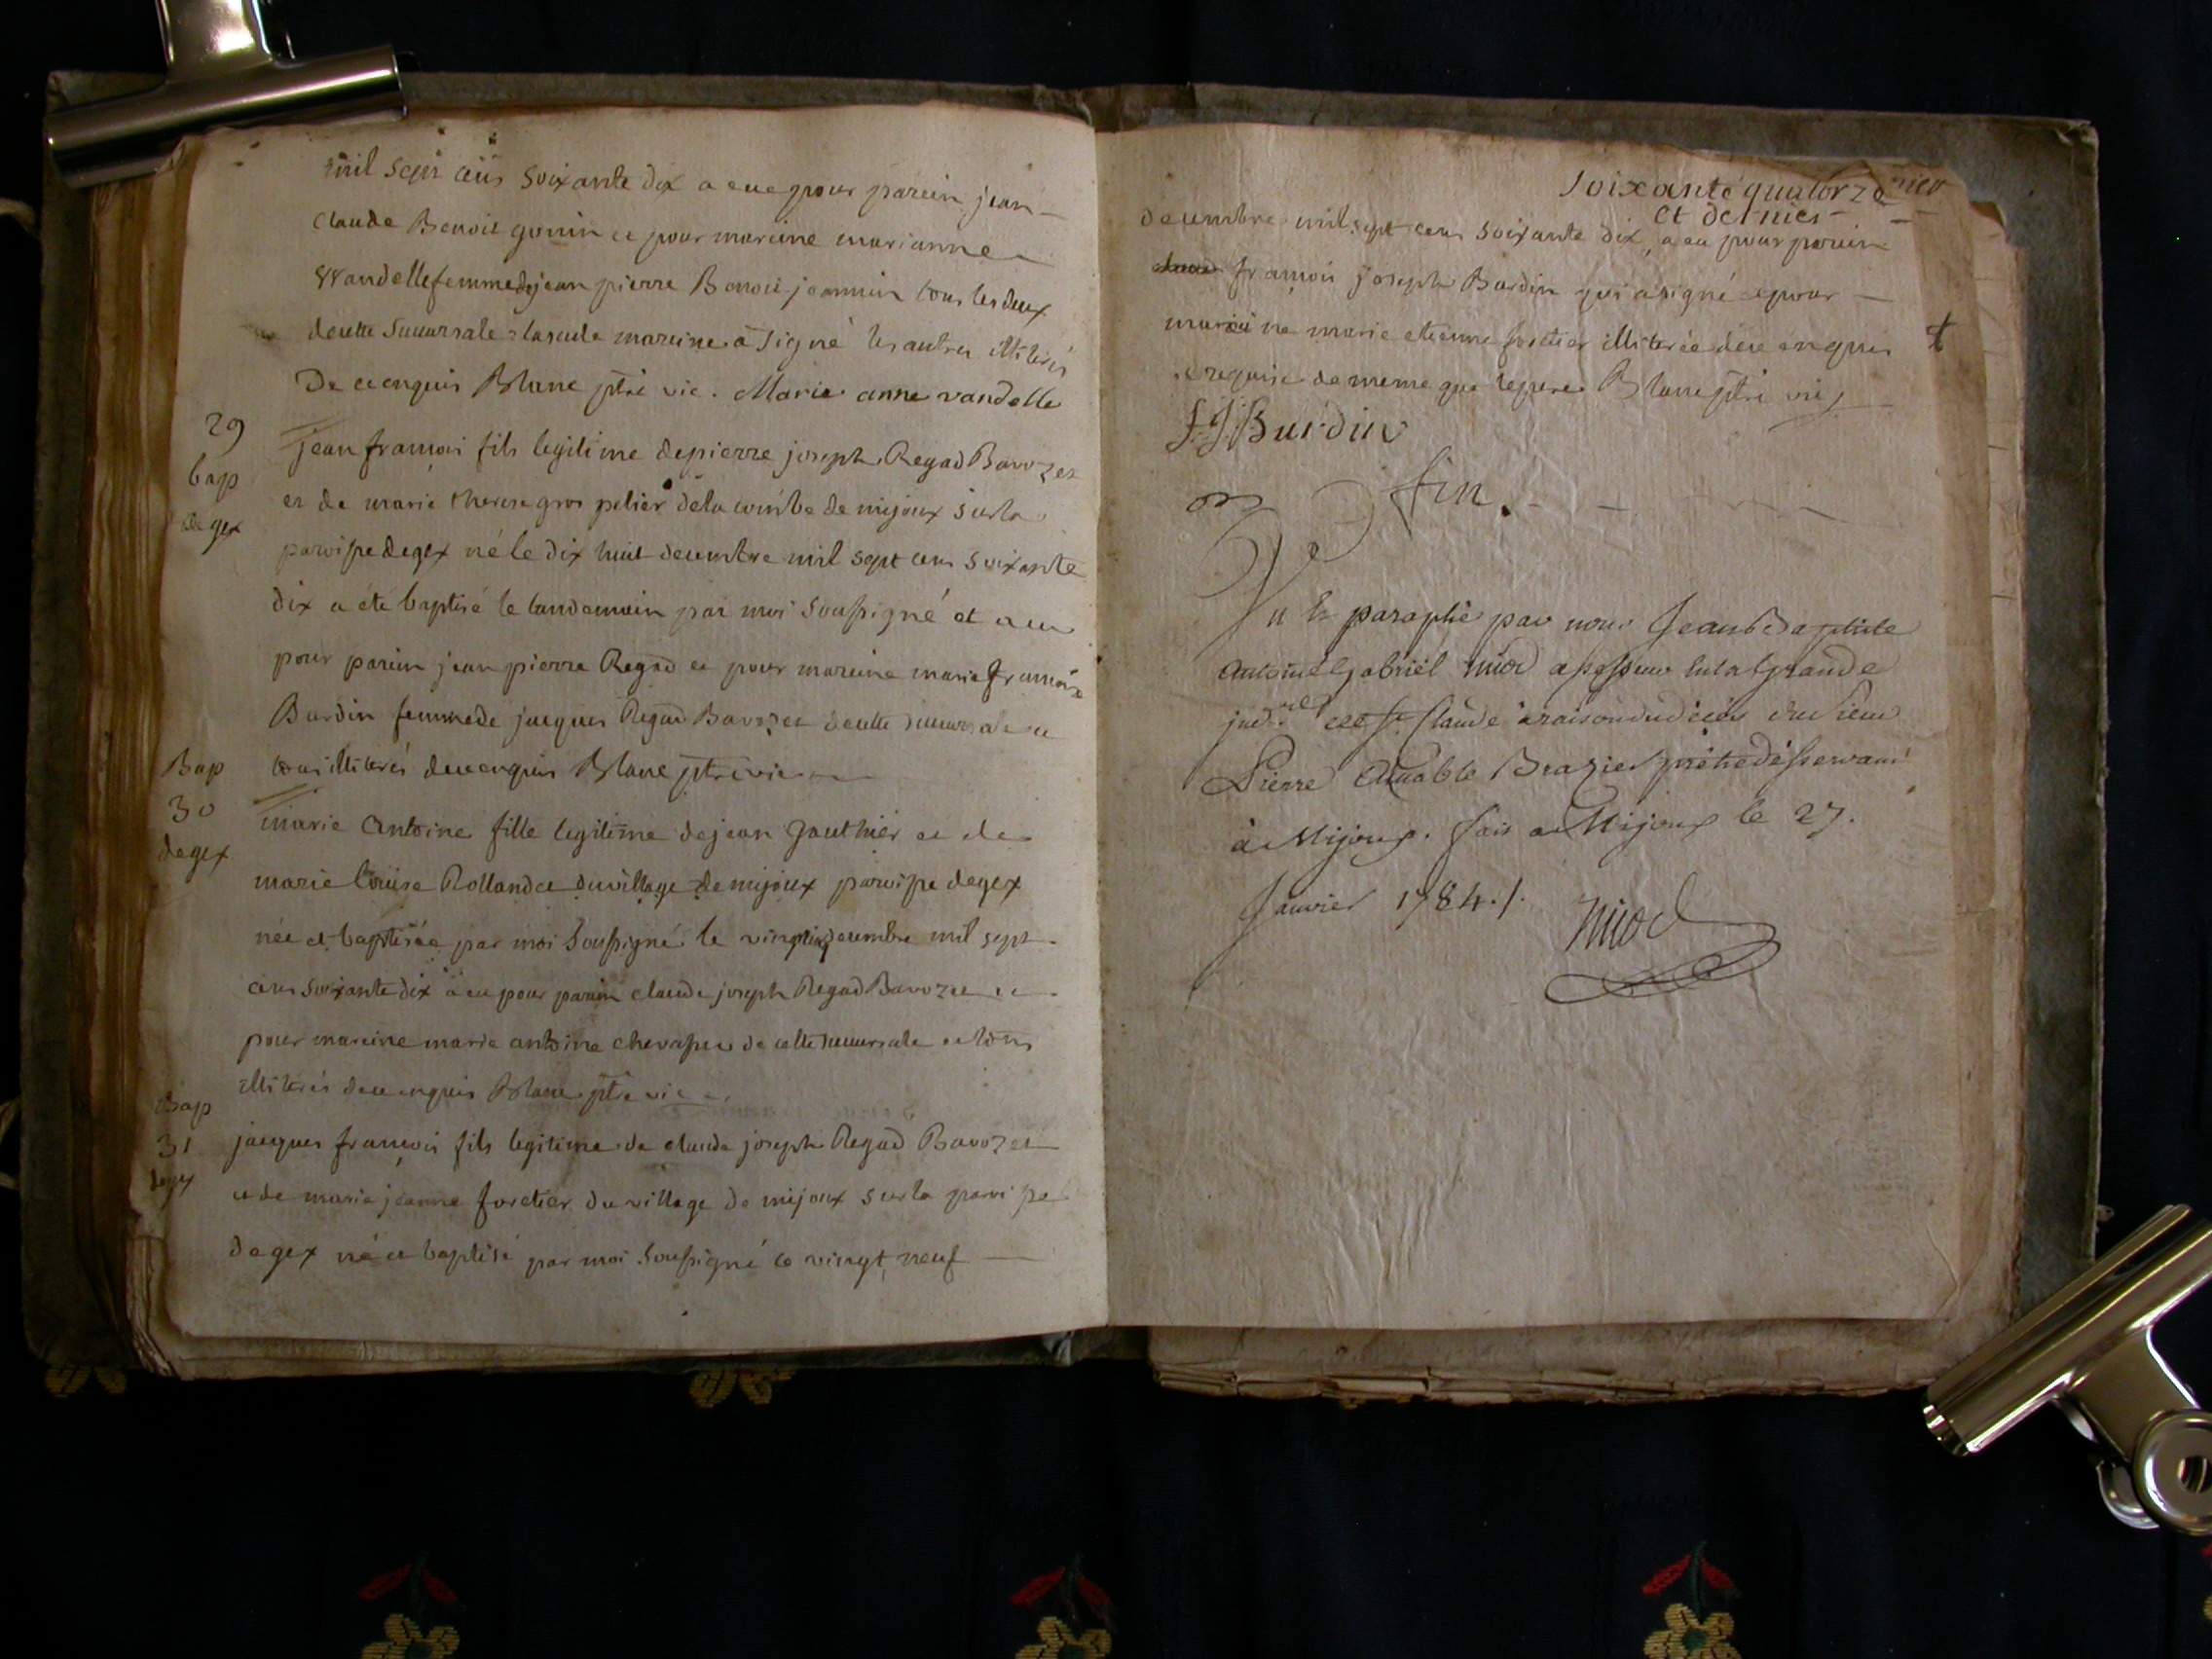 mil sept cens soixante dix a eue pour parein jean
claude Benoit gonin et pour mareine marianne
Vandelle femme de jean pierre Benoit jeannin tous les deux
de cette Succursale la seule mareine a signé les autres illiterés
De ce enquis Blanc ptre vic. Marie anne vandelle
29
bap
de gex
jean francois fils legitime de pierre joseph Regad Bavozet
et de marie therese gros pelier de la combe de mijoux sur la
paroisse de gex né le dix huit decembre mil sept cens soixante
dix a été baptisé le landemain par moi soussigné et a eu
pour parein jean pierre Regad et pour mareine marie francoise
Burdin femme de jacques Regad Bavozet de cette succursale et
tous illiterés de ce enquis Blanc ptre vic
Bap
30
de gex
marie Antoine fille legitime de jean Gauthier et de
marie louise Rollandez du village de mijoux paroisse de gex
née et baptisée par moi soussigné le decembre mil sept
cens soixante dix a eu pour parein claude joseph Regad Bavozet et
pour mareine marie antoine de cette succursale et tous
illiterés de ce enquis Blanc ptre vic
Bap
31
de gex
jacques francois fils legitime de claude joseph Regad Bavozet
et de marie jeanne foretier du village de mijoux sur la paroisse
de gex né et baptisé par moi soussigné le vingt neuf
soixante quatorze
et dernier
decembre mil sept cens soixante dix a eu pour parein
francois joseph Burdin qui a signé et pour
mareine marie etienne foretier illiterée de ce enquis
et requise de meme que le pere Blanc ptre vic
f. J. Burdin
fin.
Vu et paraphé par nous Jean Baptiste
Antoine Gabriel Nicod assesseur en la Grande
jud.re de St. Claude a raison du décès du Sieur
Pierre Amable Brazier prêtre désservant
à Mijoux. fait a Mijoux le 27.
Janvier 1784./.
Nicod